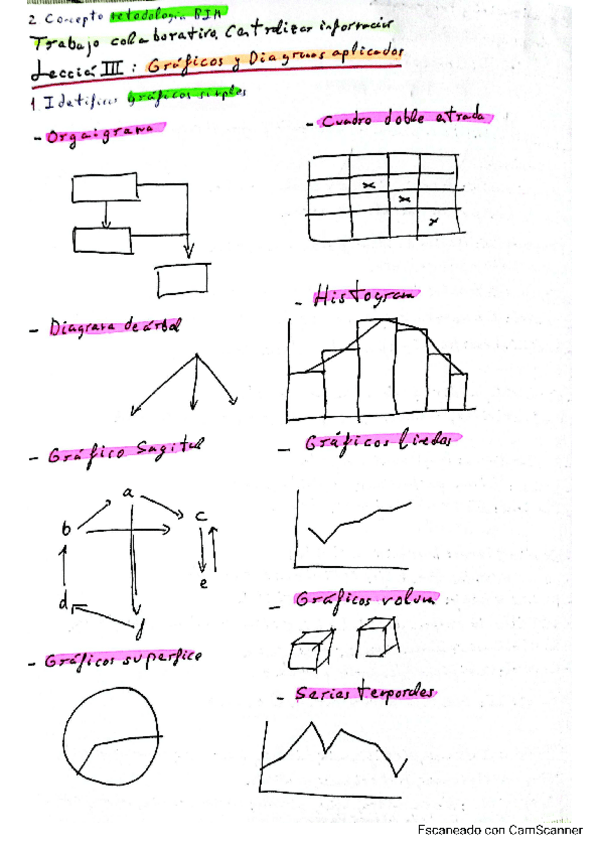 2. Concepto Metodología BIM
Trabajo colaborativo, Centralizar información
Lección III: Gráficos y Diagramas aplicados
1. Identifico gráficos simples
- Organigrama
- Cuadro doble entrada
- Diagrama de árbol
- Histogram
- Gráfico Sagital
- Gráficos lineas
a
b
c
d
e
f
- Gráficos volum.
- Gráficos superfice
- Series temporales
Escaneado con CamScanner